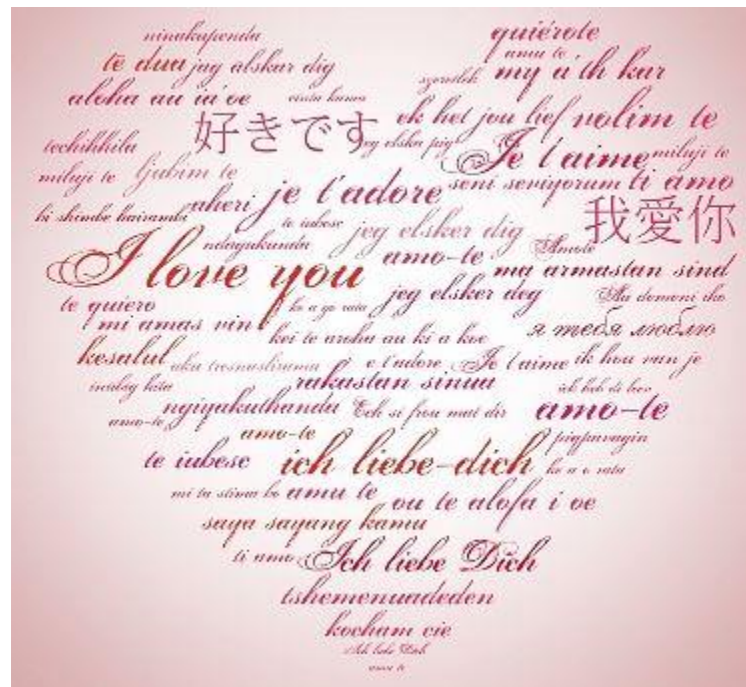 ninakupenda quiérote
te dua jag älskar dig szeretlek amu te my a'th kar
aloha au ia'oe cinta kamu ek het jou lief volim te
techihhila 好きです eg elska þig Je t'aime miluji te
miluji te ljubim te aheri je t'adore seni seviyorum ti amo
bi shimbe hairamda te iubesc jeg elsker dig 我愛你
I love you ndagukunda amo-te Amote ma armastan sind
te quiero ko a go rata jeg elsker deg
mi amas vin kei te aroha au ki a koe я тебя люблю
kesalul aka tresnaslirama j e t'adore Je t'aime ik hou van je
inalag kita rakastan sinua
amo-te ngiyakuthanda Ech si frou mat dir amo-te
amo-te pigpavagin
te iubesc ich liebe-dich ko a o rata
mi ta stima bo amu te ou te alofa i oe
saya sayang kamu
ti amo Ich liebe Dich
tshemenuadeden
kocham cie
Ich liebe Dich
amu te